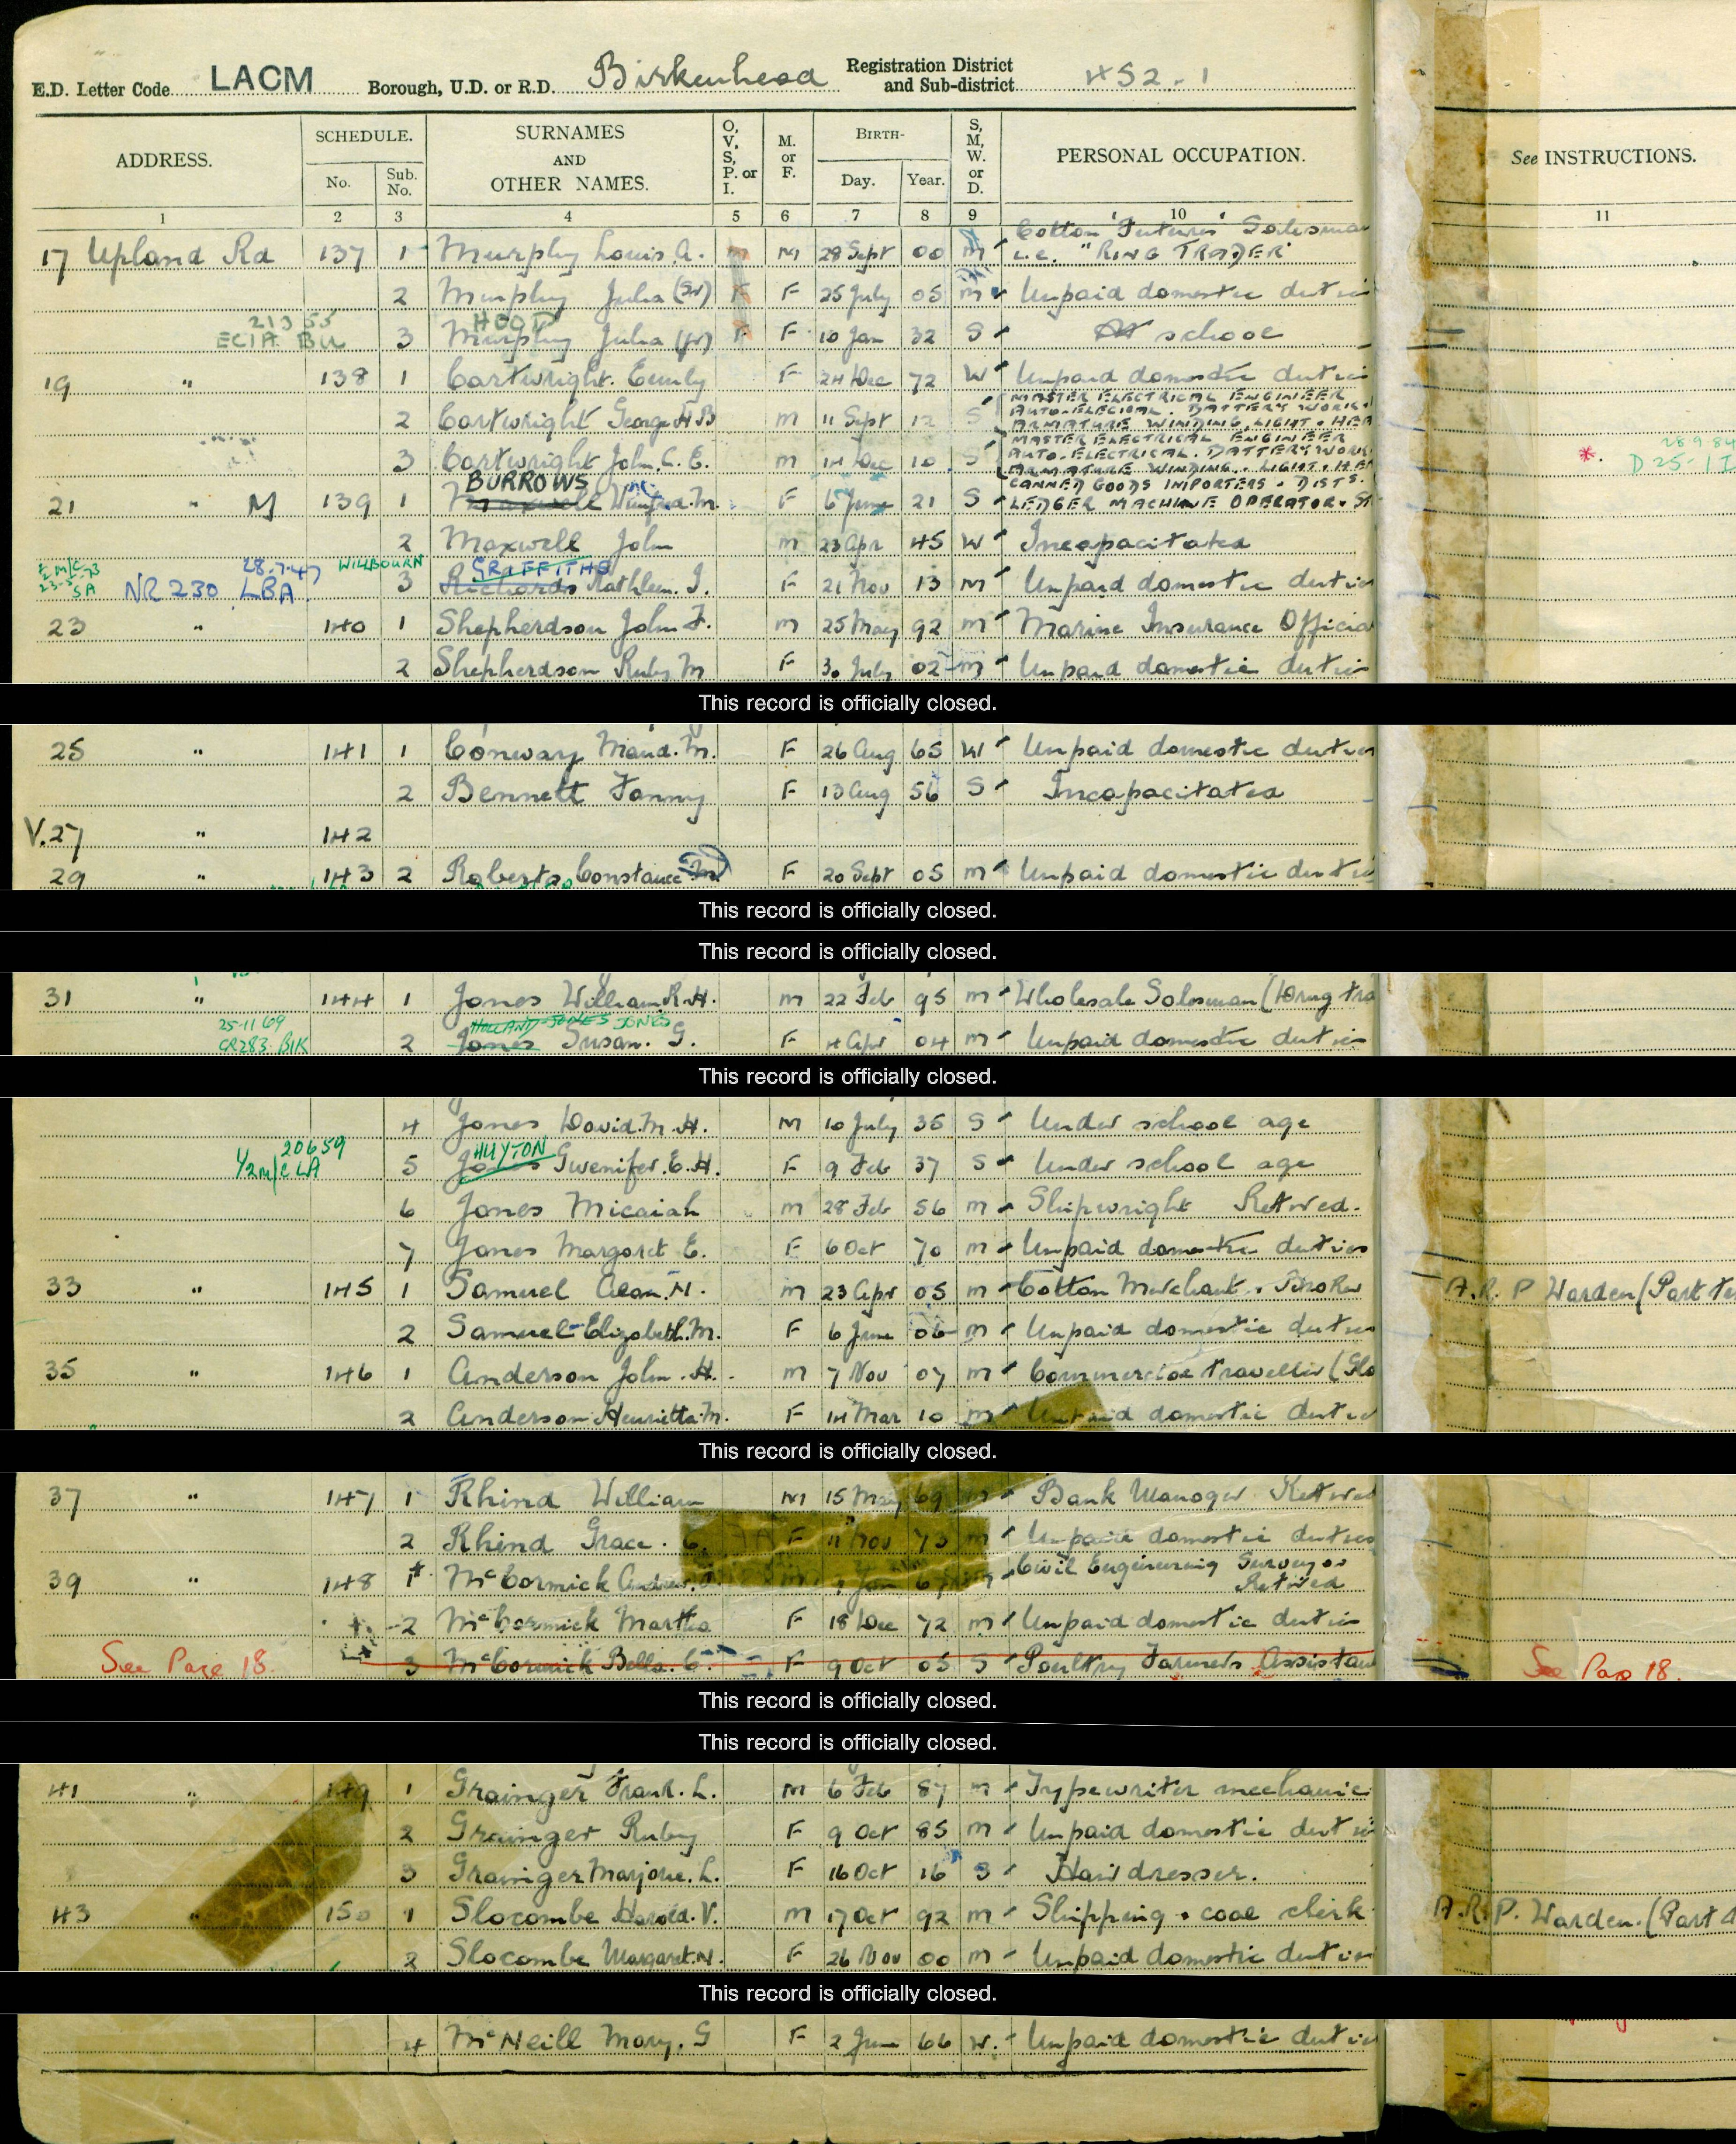 E.D. Letter Code LACM Borough, U.D. or R.D. Birkenhead Registration District and Sub-district 452-1
ADDRESS. SCHEDULE. No. Sub. No. SURNAMES AND OTHER NAMES. O, V, S, P. or I. M. or F. BIRTH- Day. Year. S, M, W. or D. PERSONAL OCCUPATION. See INSTRUCTIONS.
1 2 3 4 5 6 7 8 9 10 11
Cotton Futures Salesman
17 Upland Rd 137 1 Murphy Louis A. M M 28 Sept 00 M i.e. "RING TRADER"
2 Murphy Julia (Sr) F F 25 July 05 M Unpaid domestic duties
21355 HOOD
ECIA BU 3 Murphy Julia (Jr) F F 10 Jan 32 S At school
19 " 138 1 Cartwright Emily F 24 Dec 72 W Unpaid domestic duties
MASTER ELECTRICAL ENGINEER
2 Cartwright George H B M 11 Sept 12 S AUTO-ELECTRICAL. BATTERY WORK.
ARMATURE WINDING, LIGHT. HEA
MASTER ELECTRICAL ENGINEER 28.9.84
3 Cartwright John C. E. M 14 Dec 10 S AUTO-ELECTRICAL. BATTERY WORK *. D 25-1
ARMATURE WINDING. LIGHT. HEA
BURROWS CANNED GOODS IMPORTERS. DISTS.
21 " M 139 1 Maxwell Winifred M. F 6 June 21 S LEDGER MACHINE OPERATOR.
2 Maxwell John M 23 Apr 45 W Incapacitated
28.7.47 WILLBOURN GRIFFITHS
NR 230 LBA 3 Richards Kathleen. I. F 21 Nov 13 M Unpaid domestic duties
23 " 140 1 Shepherdson John F. M 25 May 92 M Marine Insurance Official
2 Shepherdson Ruby M F 30 July 02 M Unpaid domestic duties
This record is officially closed.
25 " 141 1 Conway Maud. M. F 26 Aug 65 W Unpaid domestic duties
2 Bennett Fanny F 13 Aug 56 S Incapacitated
V. 27 " 142
29 " 143 2 Roberts Constance F 20 Sept 05 M Unpaid domestic duties
This record is officially closed.
This record is officially closed.
31 " 144 1 Jones William R. H. M 22 Feb 95 M Wholesale Salesman (Drug Tra
25-11 69 HOLLAND-JONES JONES
CR283 BIK 2 Jones Susan. G. F 4 Apr 04 M Unpaid domestic duties
This record is officially closed.
4 Jones David. M. H. M 10 July 35 S Under school age
20659 HUYTON
1/2 M/C LA 5 Jones Gwenifer. E. H. F 9 Feb 37 S Under school age
6 Jones Micaiah M 28 Feb 56 M Shipwright Retired.
7 Jones Margaret E. F 6 Oct 70 M Unpaid domestic duties
33 " 145 1 Samuel Alan. H. M 23 Apr 05 M Cotton Merchant. Broker A. R. P Warden (Part
2 Samuel Elizabeth. M. F 6 June 06 M Unpaid domestic duties
35 " 146 1 Anderson John. H. M 7 Nov 07 M Commercial Traveller (Glo
2 Anderson Henrietta M. F 14 Mar 10 M Unpaid domestic duties
This record is officially closed.
37 " 147 1 Rhind William M 15 May 69 M Bank Manager Retired
2 Rhind Grace. C. F 11 Nov 73 M Unpaid domestic duties
Civil Engineering Surveyor
39 " 148 1 McCormick Andrew M Jan M Retired
2 McCormick Martha F 18 Dec 72 M Unpaid domestic duties
See Page 18. 3 McCormick Bella. C. F 9 Oct 05 S Poultry Farmers Assistant See Page 18.
This record is officially closed.
This record is officially closed.
41 " 149 1 Grainger Frank. L. M 6 Feb 87 M Typewriter mechanic
2 Grainger Ruby F 9 Oct 85 M Unpaid domestic duties
3 Grainger Marjorie. L. F 16 Oct 16 S Hairdresser.
43 " 150 1 Slocombe Harold. V. M 17 Oct 92 M Shipping. coal clerk A. R. P. Warden. (Part
2 Slocombe Margaret. N. F 26 Nov 00 M Unpaid domestic duties
This record is officially closed.
4 McNeill Mary. G F 2 June 66 W. Unpaid domestic duties